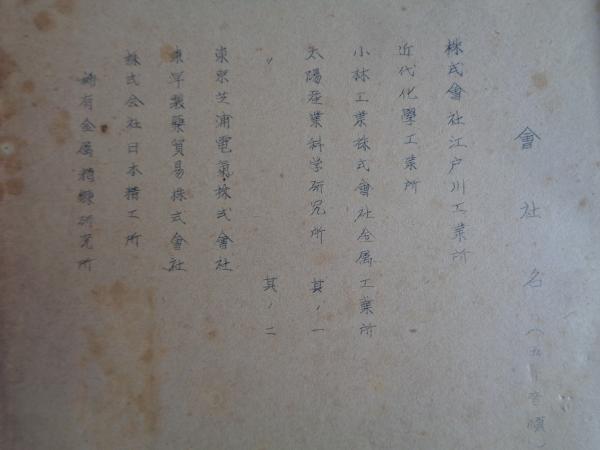 會社名(五十音順)
株式會社江戸川工業所
近代化學工業所
小林工業株式會社金属工業所
太陽産業科学研究所 其ノ一
〃 其ノ二
東京芝浦電氣株式會社
東洋製藥貿易株式會社
株式会社日本精工所
稀有金属精錬研究所